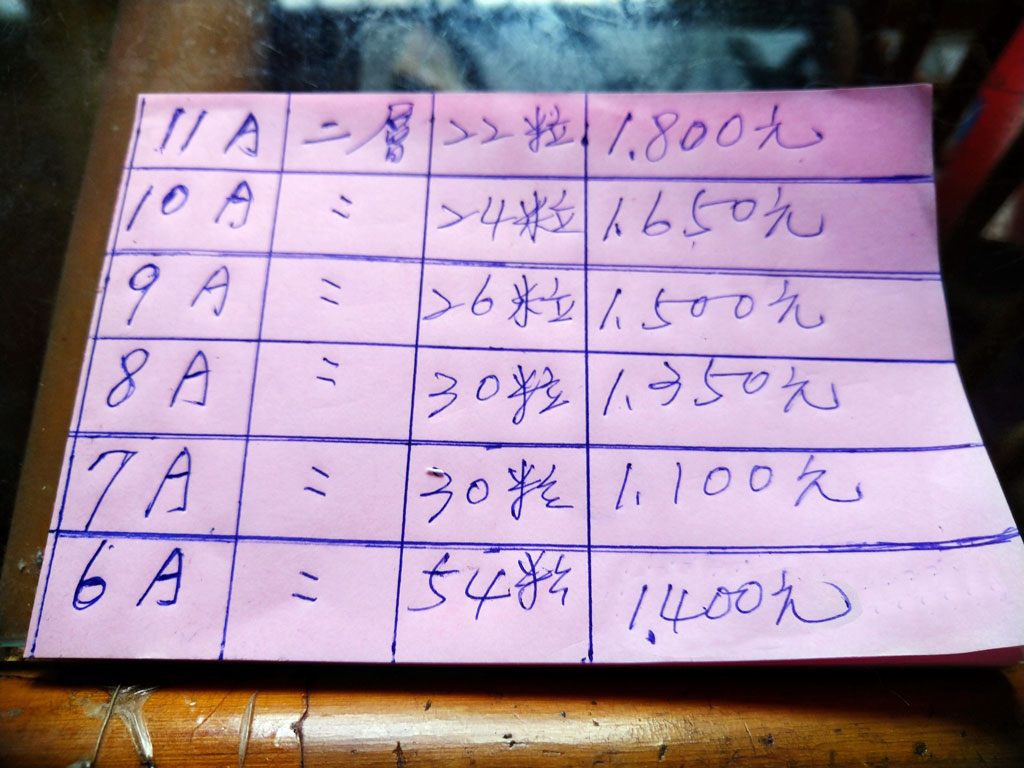 11A 二層 22粒 1.800元
10A 二 24粒 1.650元
9A 二 26粒 1.500元
8A 二 30粒 1.350元
7A 二 30粒 1.100元
6A 二 54粒 1.400元